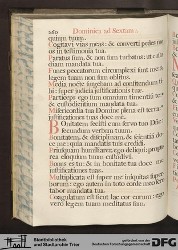 260 Dominica ad Sextam.
quium tuum.
Cogitavi vias meas: & converti pedes meos
in testimonia tua.
Paratus sum, & non sum turbatus: ut custo
diam mandata tua.
Funes peccatorum circumplexi sunt me: &
legem tuam non sum oblitus.
Media nocte surgebam ad confitendum ti
bi: super judicia justificationis tuæ.
Particeps ego sum omnium timentium te:
& custodientium mandata tua.
Misericordia tua Domine plena est terra:
justificationes tuas doce me.
Bonitatem fecisti cum servo tuo Domine:
secundum verbum tuum.
Bonitatem, & disciplinam, & scientiam do
ce me: quia mandatis tuis credidi.
Priusquam humiliarer, ego deliqui: propte
rea eloquium tuum custodivi.
Bonus es tu: & in bonitate tua doce me
justificationes tuas.
Multiplicata est super me iniquitas super
borum: ego autem in toto corde meo scru
tabor mandata tua.
Coagulatum est sicut lac cor eorum: ego
vero legem tuam meditatus sum.
Stadtbibliothek
und Stadtarchiv Trier
gefördert durch die
DFG